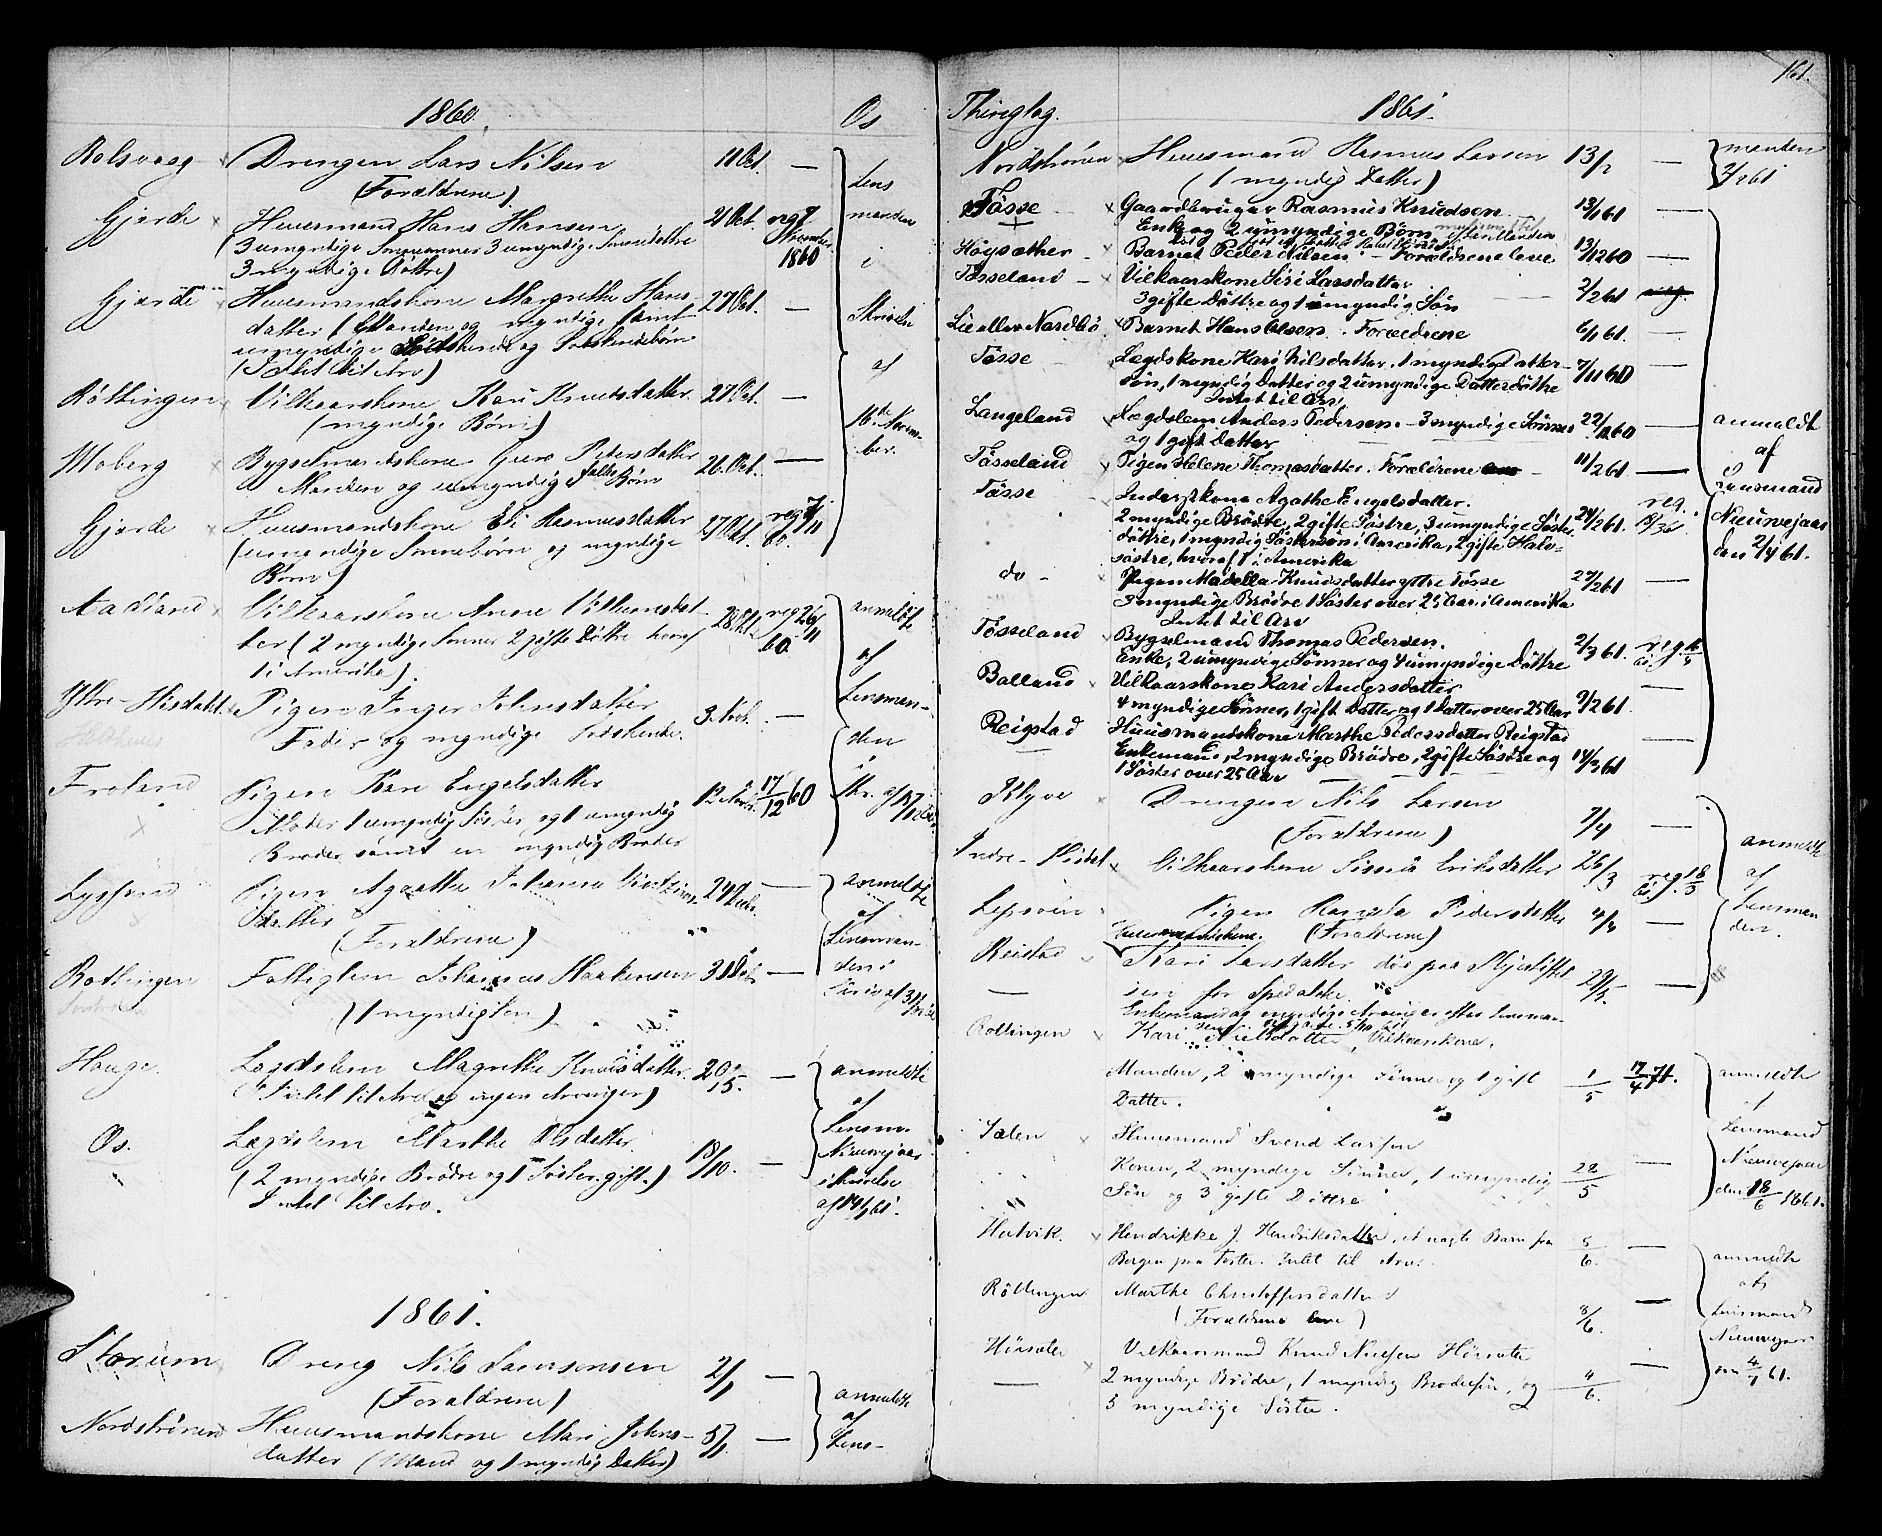 1860.
Os
Rolsvaag Drengen Lars Nilsen 11 Oct. —
(Forældrene)
Gjerde Huusmand Hans Hansen 21 Oct. reg 7
3 umyndige Sønnesønner 3 umyndige Sønnedøttre November
3 myndige Døttre) 1860
Lens
manden
i
Skrivelse
af
16de Novem-
ber.
Gjerde Huusmandskone Margrethe Hans 27 Oct. —
datter (Manden og myndige samt
umyndige Sødskende og Sødskendebørn
(Intet til Arv)
Røttingen Vilkaarskone Kari Knudsdatter 27 Oct. —
(myndige Børn)
Moberg Bygselmandskone Guro Pedersdatter 26 Oct. —
Manden og umyndige fælles Børn
Gjerde Huusmandskone Eli Rasmusdatter 27 Oct. reg 7/11
(umyndige Sønnebørn og myndige 60.
Børn)
Aadland Vilkaarskone Anne Villumsdat- 28 Oct. reg 26/11
ter (2 myndige Sønner 2 gifte Døttre hvoraf 60.
1 i Amerika).
anmeldte
af
Lensman-
den
i
Skr. af
Ytre-Hisdahl Pigen Inger Johnsdatter 3 Nov. —
Fader og myndige Sødskende.
Frøland Pigen Kari Engelsdatter 12 Nov. 17/12 60
Moder 1 umyndig Søster og 1 umyndig
Broder samt en myndig Broder
Lysfjord Pigen Agathe Johanne 24 Decbr. —
datter
(Forældrene)
anmeldte
af
Lensman-
den i
Røttingen Fattiglem Johannes Haakensen 31 Dcbr —
(1 myndig Søn)
Hauge. Lægdslem Magrethe Knudsdatter 20/5. —
(Intet til Arv og ingen Arvinger)
anmeldte
af
Lensm.
Nieuwejaar
i Skrivelse
af 19/1 61.
Os. Lægdslem Marthe Olsdatter 18/10. —
(2 myndige Brødre og 1 Søster gift.)
Intet til Arv.
1861.
Dreng Nils Samsonsen 2/1 —
(Forældrene)
anmeldte
af
Lens-
Nordstrønen Huusmandskone Mari Johns- 5/1 —
datter (Mand og 1 myndig Datter)
161.
Thinglag. 1861.
Nordstrønen Huusmand Rasmus Larsen 13/2 —
(1 myndig Datter)
manden
3/2 61
Tøsse Gaardbruger Rasmus Knudsen 13/1 61 —
Enke og 2 umyndige Børn
Høysæther Barnet Peder Nilsen. — Forældrene leve 13/12 60 —
Tøsseland Vilkaarskone Siri Larsdatter 2/2 61
3 gifte Døttre og 1 umyndig Søn
Lie eller Nordbø Barnet Hans Olsen. Forældrene 6/1 61. —
Tøsse Lægdskone Kari Nilsdatter, 1 myndig Datter- 7/11 60 —
søn, 1 myndig Datter og 2 umyndige Datterdøttre
Intet til Arv,
Langeland Lægdslem Anders Pedersen. — 3 myndige Sønner 22/12 60 —
og 1 gift Datter
anmeldt
af
Lensmand
Nieuwejaar
den 2/4 61.
Tøsseland Pigen Helene Thomasdatter. Forældrene 11/2 61. —
Tøsse Inderstkone Agathe Engelsdatter. reg.
2 myndige Brødre, 2 gifte Søstre, 3 umyndige Søster 24/2 61.
døttre, 1 myndig Søstersøn i Amerika, 2 gifte Halv-
søstre, hvoraf 1 i Amerika
do — Pigen Madella Knudsdatter yttre Tøsse 27/2 61 —
3 myndige Brødre 1 Søster over 25 Aar i Amerika
Intet til Arv
Tøsseland Bygselmand Thomas Pedersen. 2/3 61. reg.
Enke, 2 umyndige Sønner og 4 umyndige Døttre
Bolland Vilkaarskone Kari Andersdatter —
4 myndige Sønner, 1 gift Datter og 1 Datter over 25 Aar 9/2 61.
Reigstad Huusmandskone Marthe Pedersdatter Reigstad —
Enkemand, 2 myndige Brødre, 2 gifte Søstre og 14/3 61
1 Søster over 25 Aar
Klyve Drengen Nils Larsen 7/4 —
(Forældrene)
Indre-Hisdal Vilkaarskone Sissela Eriksdatter 25/3 reg 18/5
61.
anmeldte
af
Lensman
den.
Lepsøen Pigen Pedersdatter 4/4 —
Huusmandskone. (Forældrene)
Reistad Kari Larsdatter død paa Pleiestiftel 29/3. —
sen for Spedalske.
Enkemand og myndige Arvinger efter Lensman-
Røttingen Kari Nielsdatter, Vilkaarskone.
Manden, 2 myndige Sønner og 1 gift 1/5 17/4 71.
Datter.
anmeldte
af
Lensmand
Nieuwejaar
den 18/6 1861.
Sælen Huusmand Svend Larsen
Konen, 2 myndige Sønner, 1 umyndig 22/5 —
Søn og 3 gifte Døttre
Hatvik. Hendrikke J. Hendriksdatter, et uægte Barn fra 5/6. —
Bergen paa Foster. Intet til Arv.
Røttingen Marthe Christoffersdatter
(Forældrene leve) 8/6. —
anmeldte
af
Lensmand
Nieuwejaar
den 4/7 61.
Hørsøter Vilkaarsmand Knud Nielsen Hørsøter
2 myndige Brødre, 1 myndig Brodersøn, og 4/6. —
5 myndige Søstre.